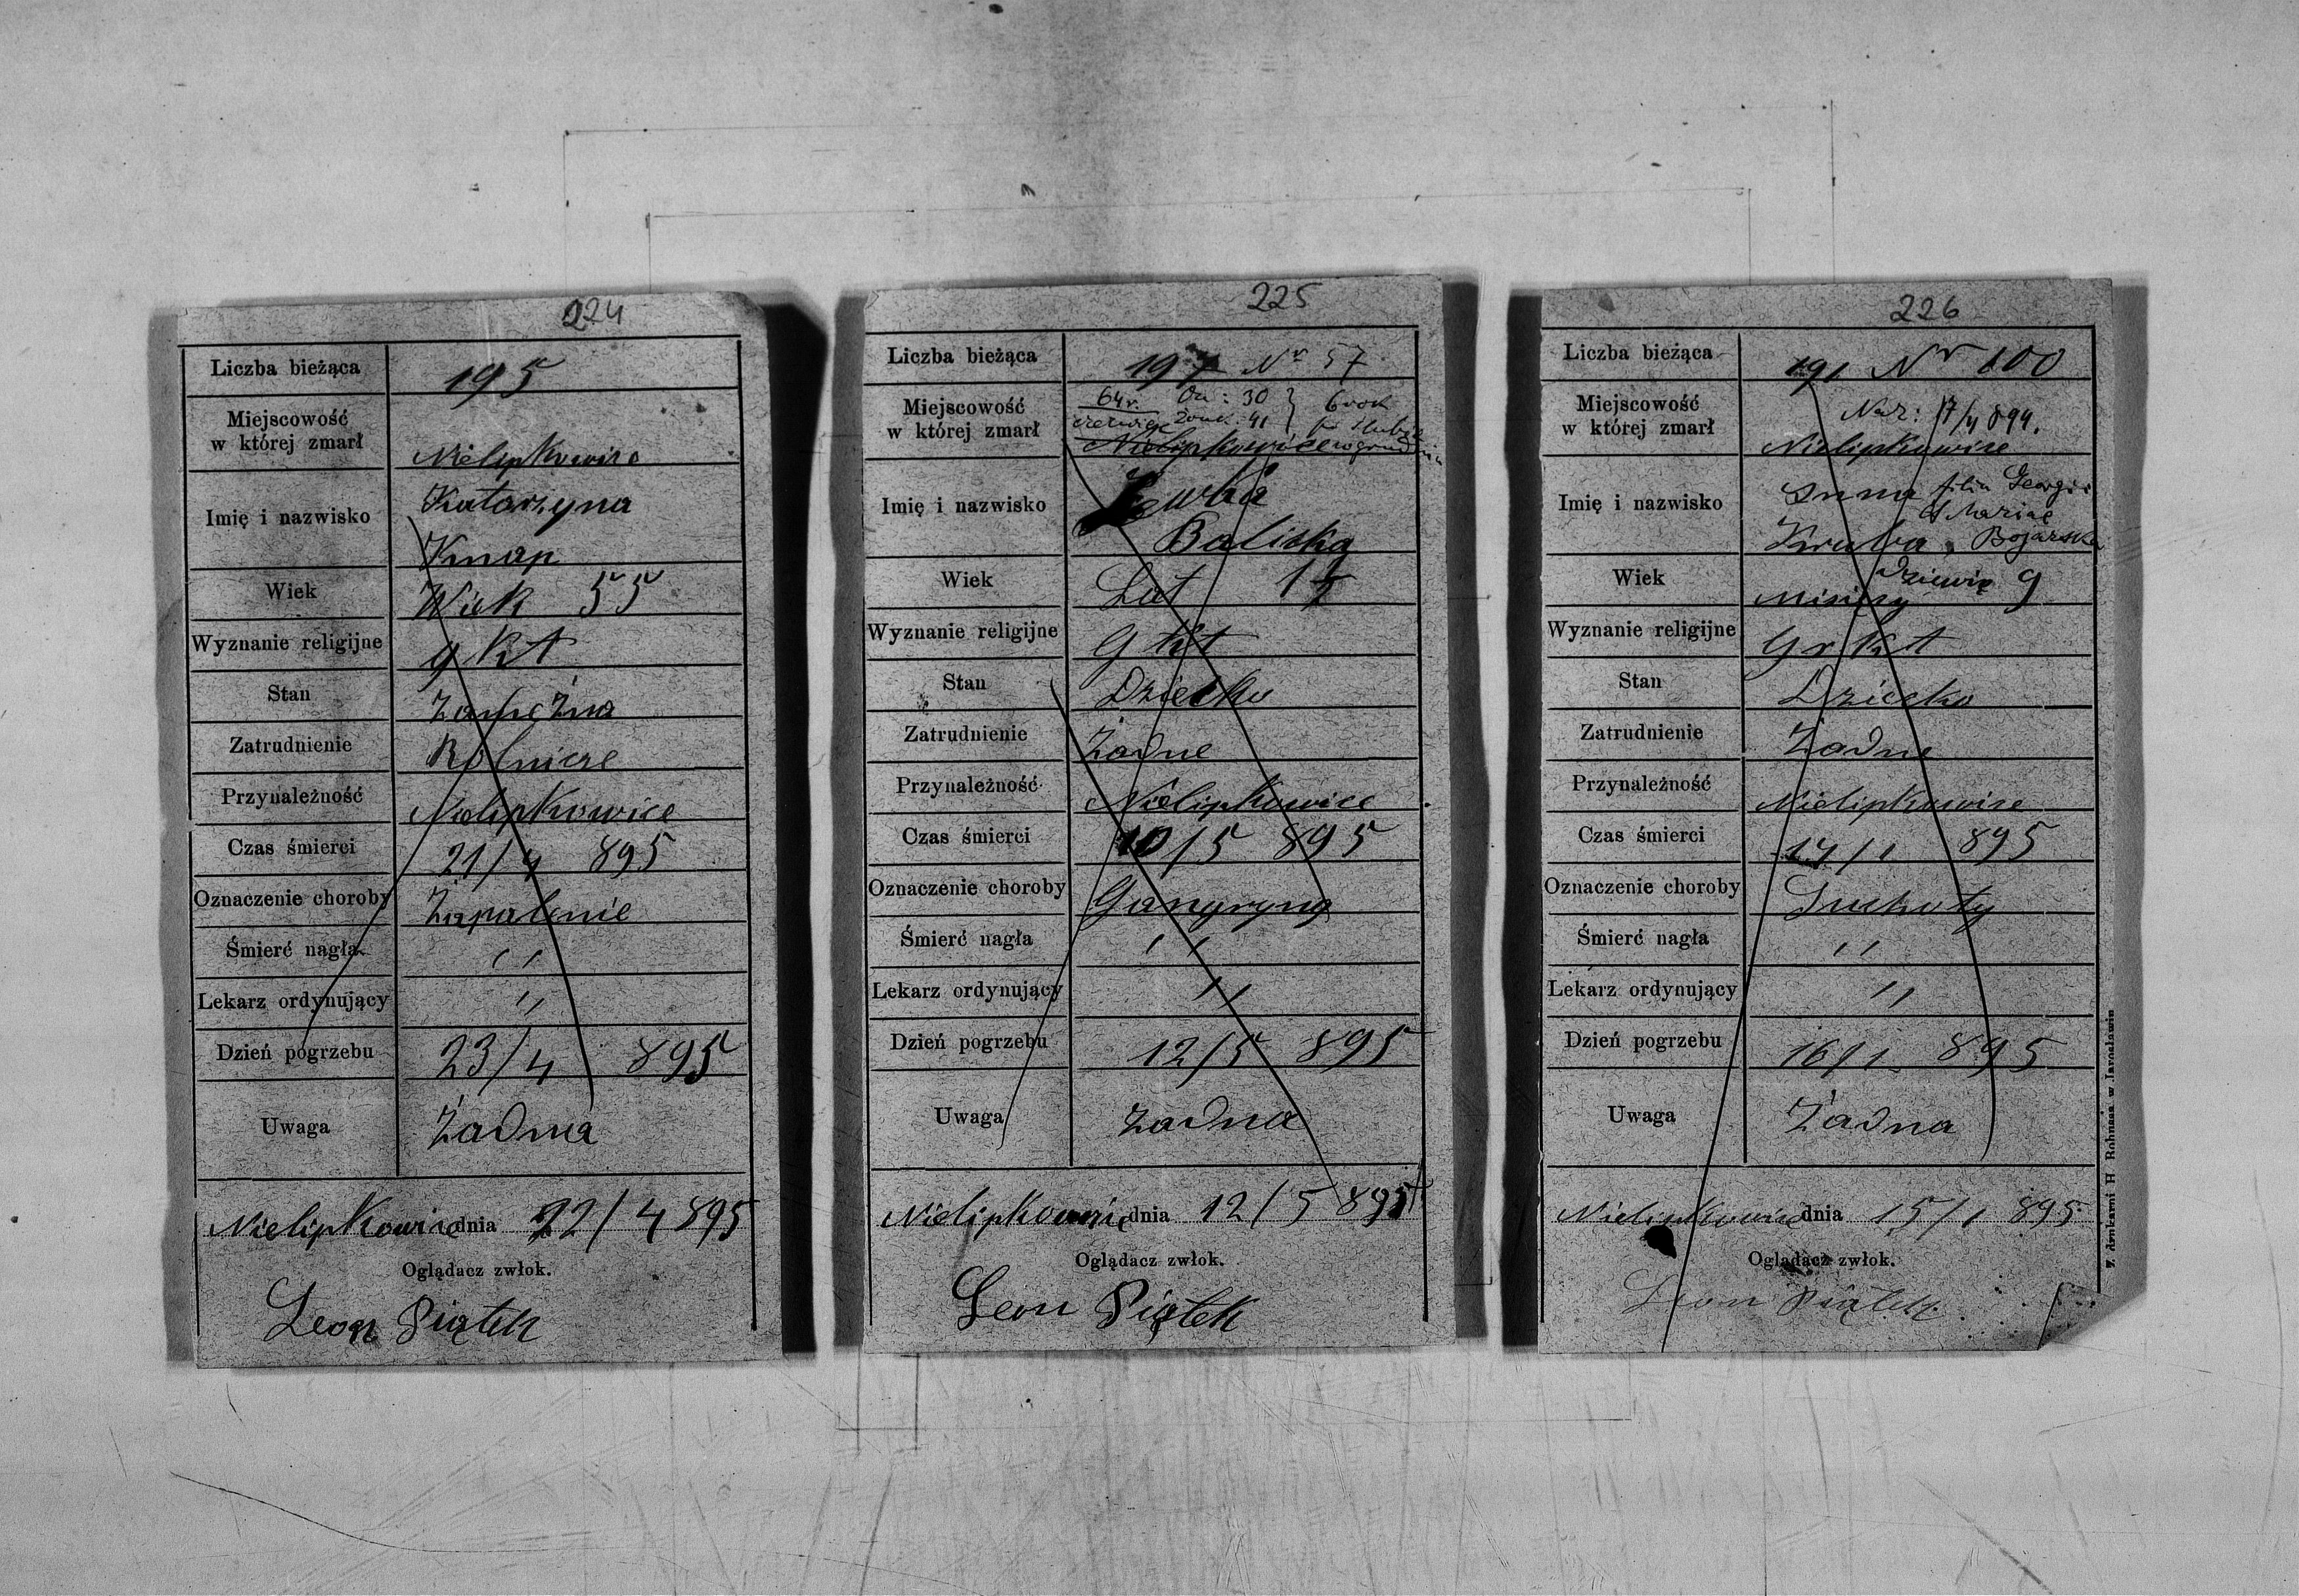 224
Liczba bieżąca 195
Miejscowość
w której zmarł Nielipkowice
Imię i nazwisko Katarzyna
Knap
Wiek Wiek 55
Wyznanie religijne g Kt
Stan Zamężna
Zatrudnienie Rolnicze
Przynależność Nielipkowice
Czas śmierci 21/4 895
Oznaczenie choroby Zapalenie
Śmierć nagła "
Lekarz ordynujący "
Dzień pogrzebu 23/4 895
Uwaga Żadna
Nielipkowice dnia 22/4 895
Oglądacz zwłok.
Leon Piątek
225
Liczba bieżąca 197 Nr 57
64 r. On: 30 6 rok
Miejscowość
w której zmarł Nielipkowice
Imię i nazwisko
Baliska
Wiek Lat
Wyznanie religijne G Kt
Stan Dziecko
Zatrudnienie Żadne
Przynależność Nielipkowice
Czas śmierci 10/5 895
Oznaczenie choroby Gangryna
Śmierć nagła "
Lekarz ordynujący "
Dzień pogrzebu 12/5 895
Uwaga Żadna
Nielipkowice dnia 12/5 895
Oglądacz zwłok.
Leon Piątek
226
Liczba bieżąca 191 Nr 100
Nar: 17/4 894.
Miejscowość
w której zmarł Nielipkowice
Imię i nazwisko Anna filia Georgii
et Mariae
Kruba Bojarska
Wiek Misięcy Dziewię 9
Wyznanie religijne Gr Kt
Stan Dziecko
Zatrudnienie Żadne
Przynależność Nielipkowice
Czas śmierci 14/1 895
Oznaczenie choroby Suchoty
Śmierć nagła "
Lekarz ordynujący "
Dzień pogrzebu 16/1 895
Uwaga Żadna
Nielipkowice dnia 15/1 895
Oglądacz zwłok.
Leon Piątek
Z drukarni H Rohmana w Jarosławiu